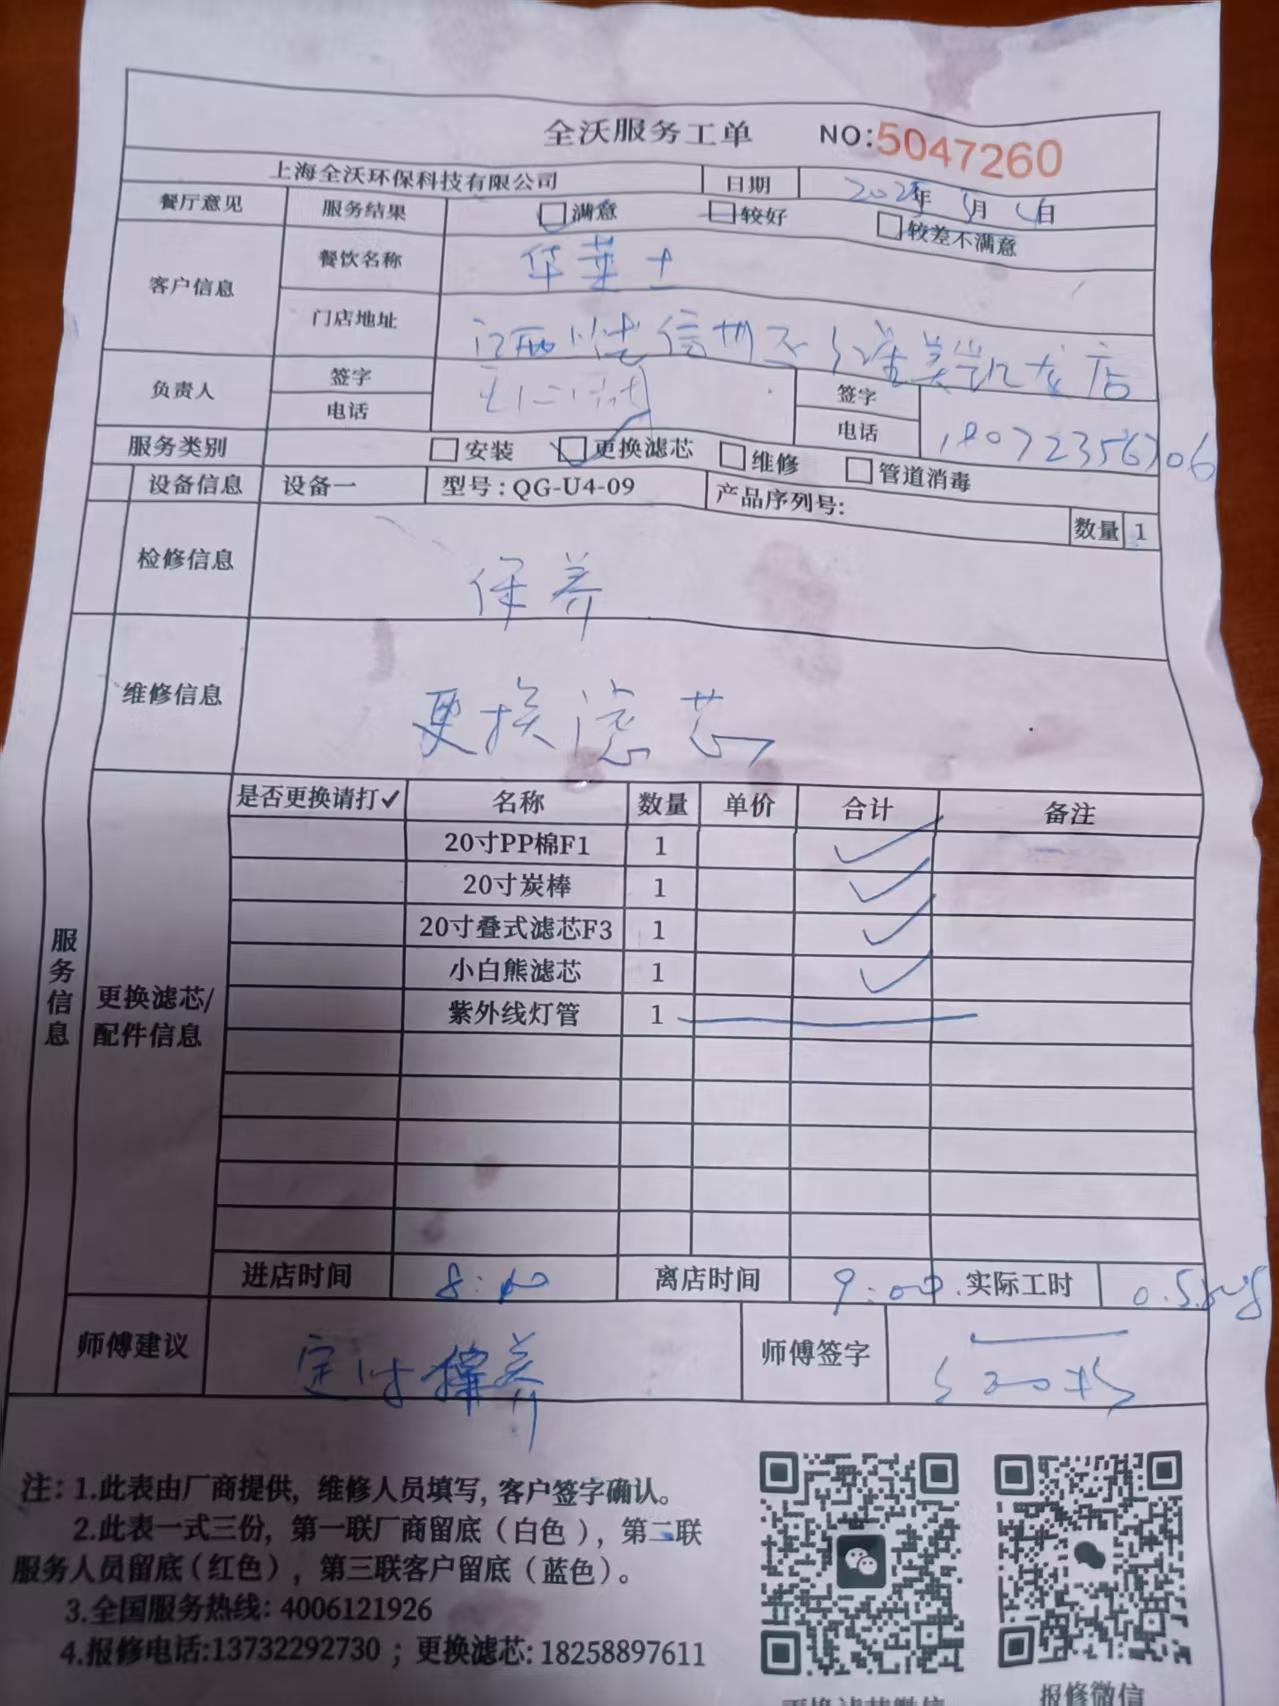 全沃服务工单 NO:5047260
上海全沃环保科技有限公司 日期 年 月 日
餐厅意见 服务结果 满意 较好 较差不满意
客户信息 餐饮名称 华莱士
门店地址 江西 信州区 红星美凯龙店
负责人 签字 签字
电话 电话 18072356706
服务类别 安装 更换滤芯 维修 管道消毒
设备信息 设备一 型号:QG-U4-09 产品序列号: 数量 1
检修信息 保养
维修信息 更换滤芯
服务信息
更换滤芯/配件信息
是否更换请打✓ 名称 数量 单价 合计 备注
20寸PP棉F1 1 ✓
20寸炭棒 1 ✓
20寸叠式滤芯F3 1 ✓
小白熊滤芯 1 ✓
紫外线灯管 1
进店时间 离店时间 9:00 实际工时
师傅建议 定时保养 师傅签字
注: 1.此表由厂商提供, 维修人员填写, 客户签字确认。
2.此表一式三份, 第一联厂商留底(白色), 第二联
服务人员留底(红色), 第三联客户留底(蓝色)。
3.全国服务热线: 4006121926
4.报修电话:13732292730 ; 更换滤芯: 18258897611
更换滤芯微信 报修微信